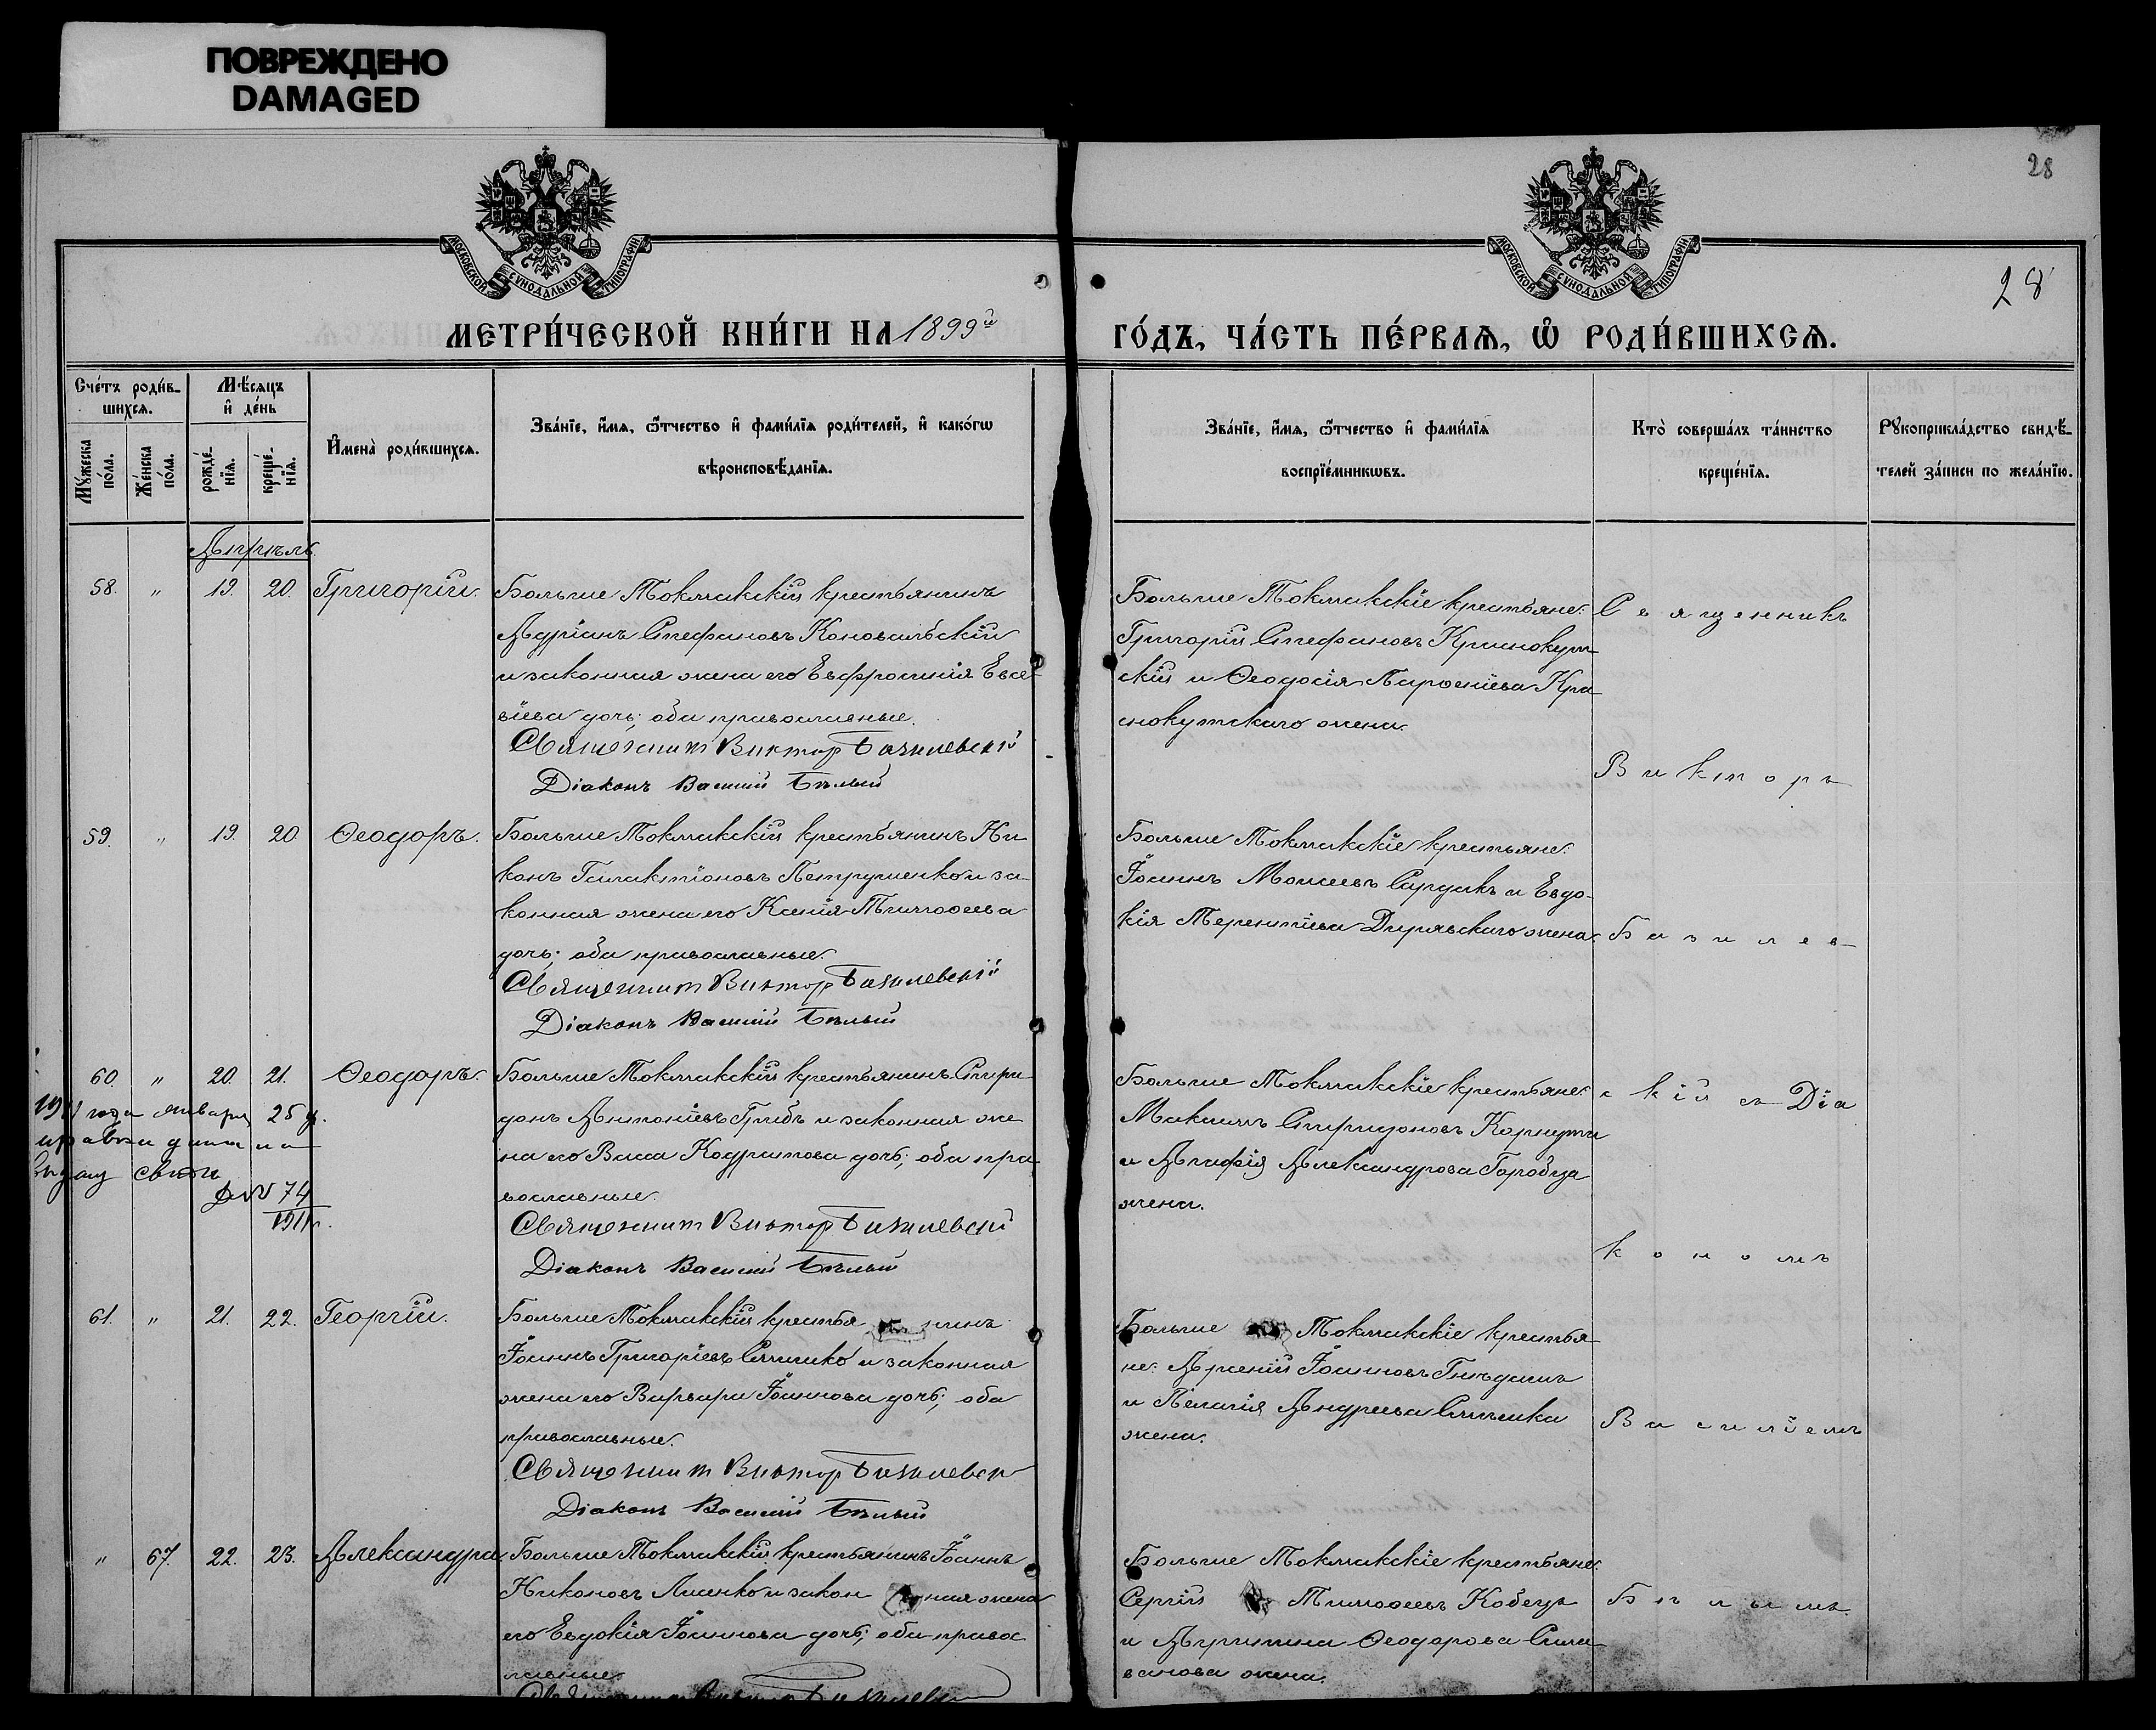 ПОВРЕЖДЕНО
DAMAGED
28
28
МОСКОВСКОЙ СѴНОДАЛЬНОЙ ТИПОГРАФІИ
МОСКОВСКОЙ СѴНОДАЛЬНОЙ ТИПОГРАФІИ
МЕТРИ́ЧЕСКОЙ КНИ́ГИ НА 1899й
ГО́ДЪ, ЧА́СТЬ ПЕ́РВАѦ, Ѡ҆ РОДИ́ВШИХСѦ.
Сче́тъ роди́в-
шихсѧ.
Мѣ́сѧцъ
и҆ де́нь
Мꙋ́жеска по́ла.
Же́нска по́ла.
рожде́-нїѧ.
креще́-нїѧ.
И҆мена̀ роди́вшихсѧ.
Зва́нїе, и҆́мѧ, ѻ҆́тчество и҆ фами́лїѧ роди́телей, и҆ како́гѡ
вѣроисповѣ́данїѧ.
Зва́нїе, и҆́мѧ, ѻ҆́тчество и҆ фами́лїѧ
воспрїе́мникѡвъ.
Кто̀ соверша́лъ та́инство
креще́нїѧ.
Рꙋкоприкла́дство свидѣ́-
телей за́писи по жела́нїю.
Апрѣль.
58. " 19. 20. Григорій.
Больше Токмакскій крестьянинъ
Адріанъ Стефановъ Коновальскій
и законная жена его Евфросинія Евсе-
віева дочь; оба православные.
Священник Виктор Базилевскій
Діаконъ Василій Бѣлый
Больше Токмакскіе крестьяне:
Григорій Стефановъ Краснокут-
скій и Ѳеодосія Парѳеніева Кра-
снокутскаго жена.
Священникъ
Викторъ
59. " 19. 20 Ѳеодоръ.
Больше Токмакскій крестьянинъ Ни-
конъ Галактіоновъ Петрушенко и за-
конная жена его Ксенія Тимоѳеева
дочь; оба православные.
Священник Виктор Базилевскій
Діаконъ Василій Бѣлый
Больше Токмакскіе крестьяне:
Іоаннъ Моисеевъ Сардакъ и Евдо-
кія Терентіева Дирявскаго жена.
Базилев-
60. " 20. 21. Ѳеодоръ.
1911 года января 25 д.
справка дана на
выдачу свид.
Д № 74
1911 г.
Больше Токмакскій крестьянинъ Спири-
донъ Антоніевъ Грибъ и законная же-
на его Васса Кодратова дочь; оба пра-
вославные.
Священник Виктор Базилевскій
Діаконъ Василій Бѣлый
Больше Токмакскіе крестьяне:
Максимъ Спиридоновъ Корнута
и Агафія Александрова Горобца
жена.
скій съ Діа
кономъ
61. " 21. 22. Георгій.
Больше Токмакскій крестья нинъ
Іоаннъ Григоріевъ и законная
жена его Варвара Іоаннова дочь; оба
православные.
Священник Виктор Базилевск
Діаконъ Василій Бѣлый
Больше Токмакскіе крестья-
не: Арсеній Іоанновъ Гнѣдашъ
и Пелагія Андреева
жена.
Василіемъ
" 67. 22. 23. Александра.
Больше Токмакскій крестьянинъ Іоаннъ
Никоновъ Лисенко и закон ная жена
его Евдокія Іоаннова дочь; оба правос
лавные.
Священник Виктор Базилевс
Больше Токмакскіе крестьяне:
Сергій Тимоѳеевъ Кобецъ
и Агрипина Ѳеодорова Сили-
ванова жена.
Бѣлымъ